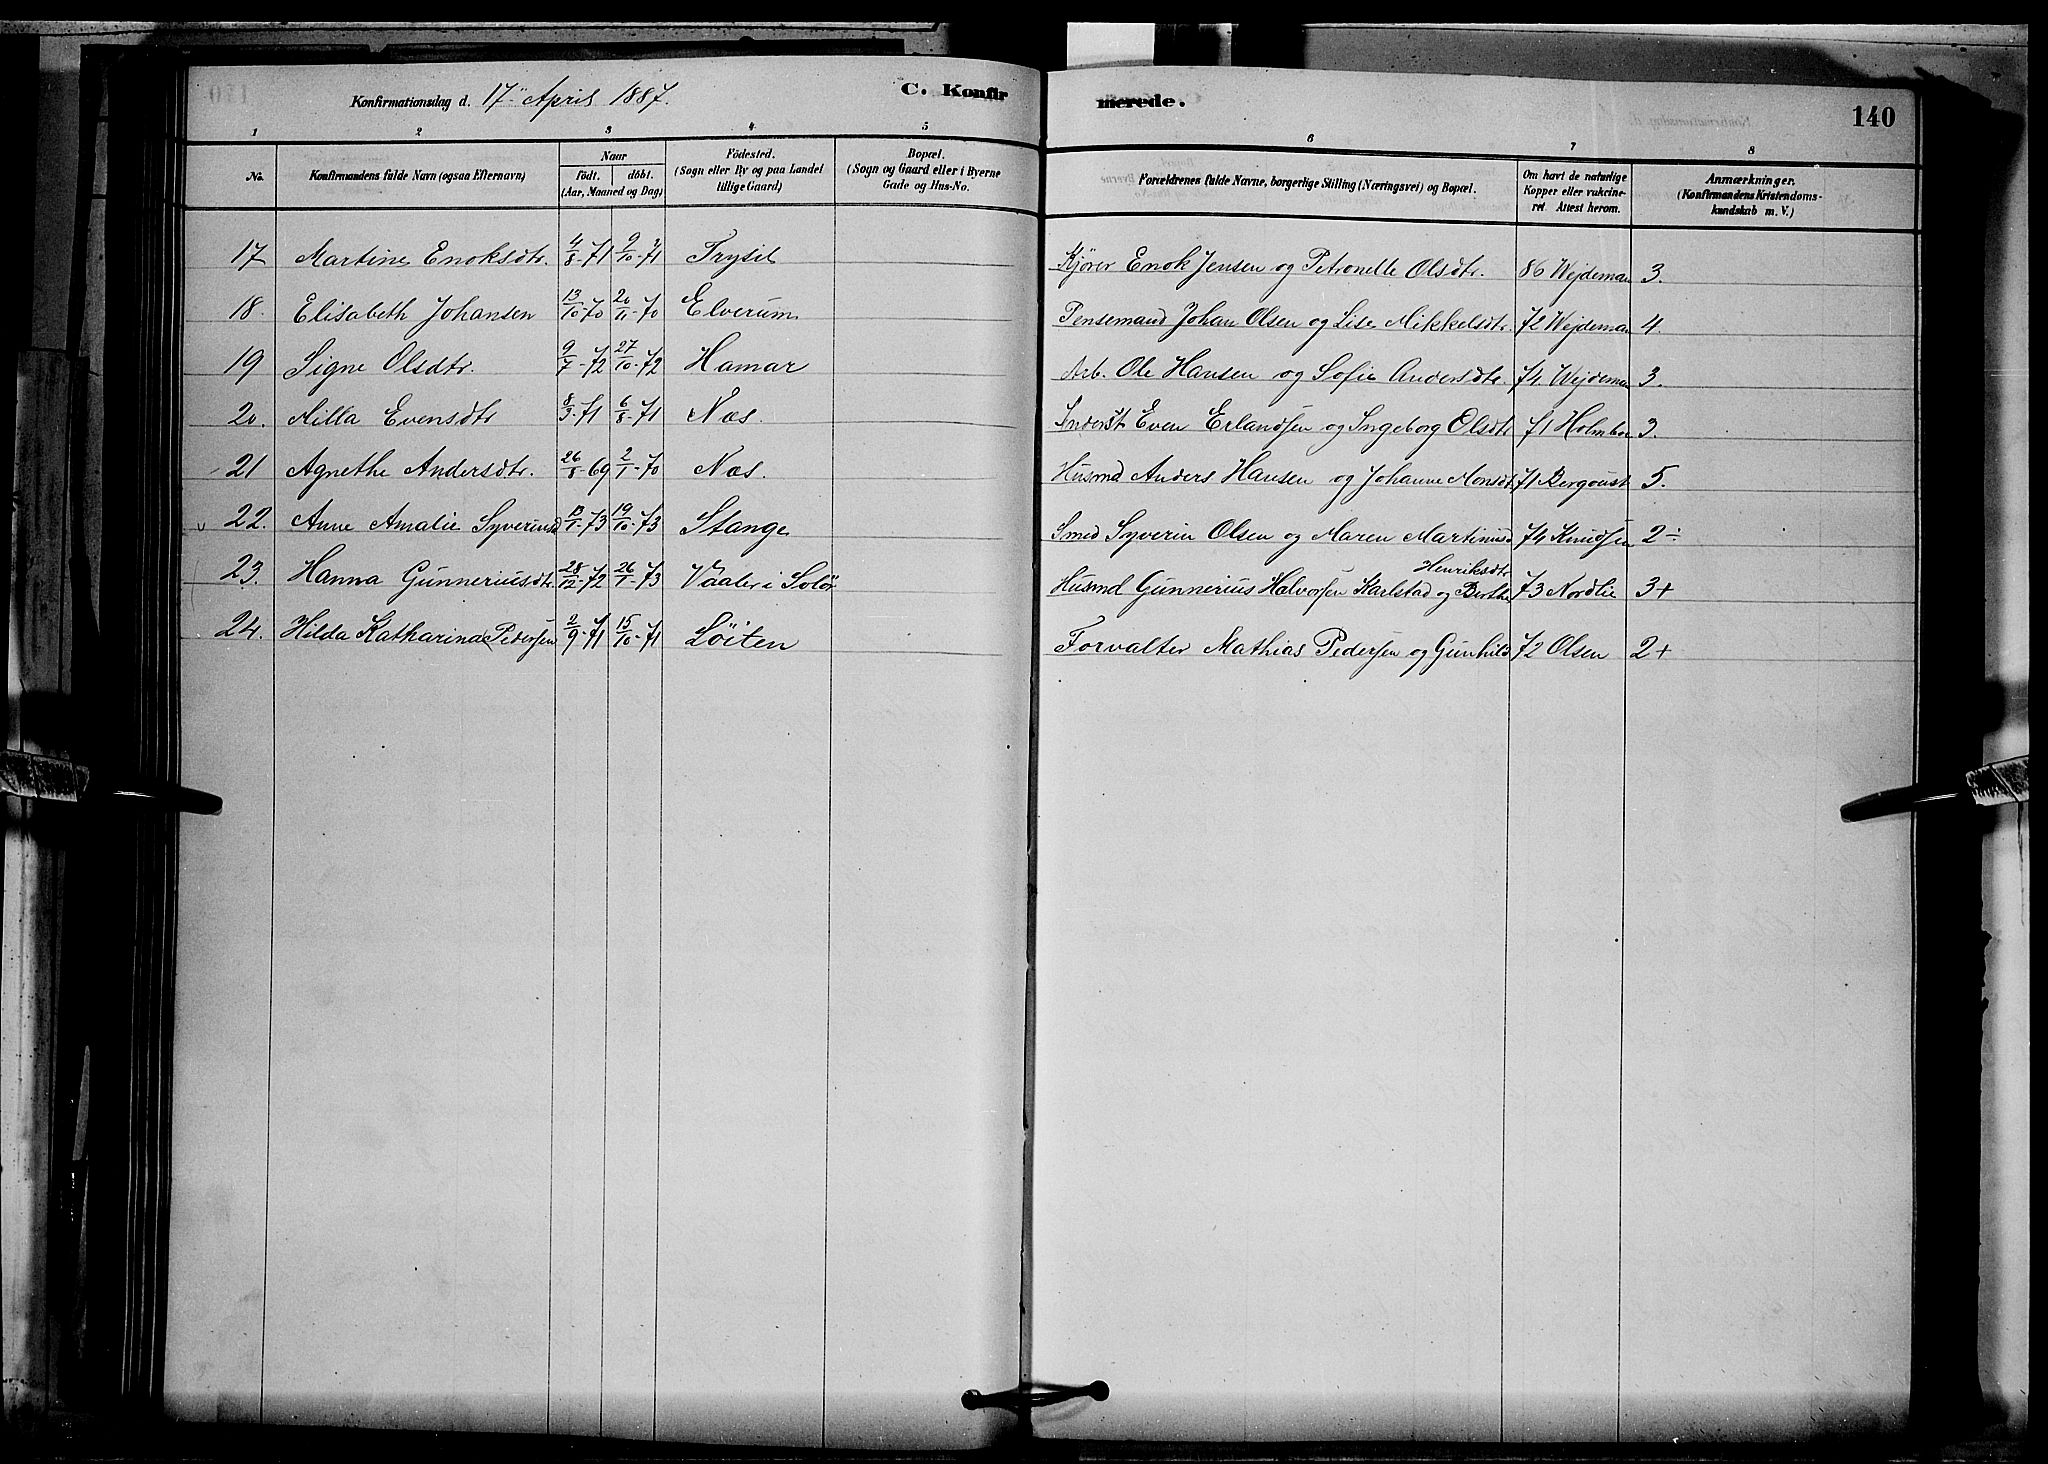 Konfirmationsdag d. 17de April 1887. C. Konfirmerede. 140
1 2 3 4 5 6 7 8
No. Konfirmandens fulde Navn (ogsaa Efternavn) Naar födt. döbt. (Aar, Maaned og Dag) Födested. (Sogn eller By og paa Landet tillige Gaard) Bopæl. (Sogn og Gaard eller i Byerne Gade og Hus-No. Forældrenes fulde Navne, borgerlige Stilling (Næringsvei) og Bopæl. Om havt de naturlige Kopper eller vakcineret. Attest herom. Anmærkninger. (Konfirmandens Kristendomskundskab m. V.)
17 Martine Enoksdtr. 4/8-71 9/10-71 Trysil Kjörer Enok Jensen og Petronelle Olsdtr. 86 Wejdeman 3.
18. Elisabeth Johansen 13/10-70 20/11-70 Elverum Pensemand Johan Olsen og Lise Mikkelsdtr. 72 Wejdeman 4.
19 Signe Olsdtr. 9/7-72 27/10-72 Hamar Arb. Ole Hansen og Sofie Andersdtr. 74 Wejdeman 3.
20. Milla Evensdtr 8/3-71 6/8-71 Næs. Inderst Even Erlandsen og Ingeborg Olsdtr 71 Holmboe 3.
21 Agnethe Andersdtr. 26/8-69 2/1-70 Næs. Husmd Anders Hansen og Johanne Monsdtr 71 Bergqust 5.
22. Anne Amalie Syverinsd /1-73 19/10-73 Stange Smed Syverin Olsen og Maren Martinusd 74 Knudsen 2÷
23. Hanna Gunneriusdtr. 28/12-72 26/1-73 Vaaler i Solör Husmd Gunnerius Halvorsen Karlstad og Berthe Henriksdtr 73 Nordlie 3+
24. Hilda Katharina Pedersen 2/9-71 15/10-71 Löiten Forvalter Mathias Pedersen og Gunhild 72 Olsen 2+